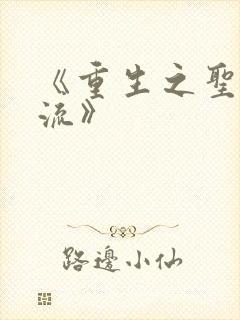 《重生之聖
流》
路邊小仙